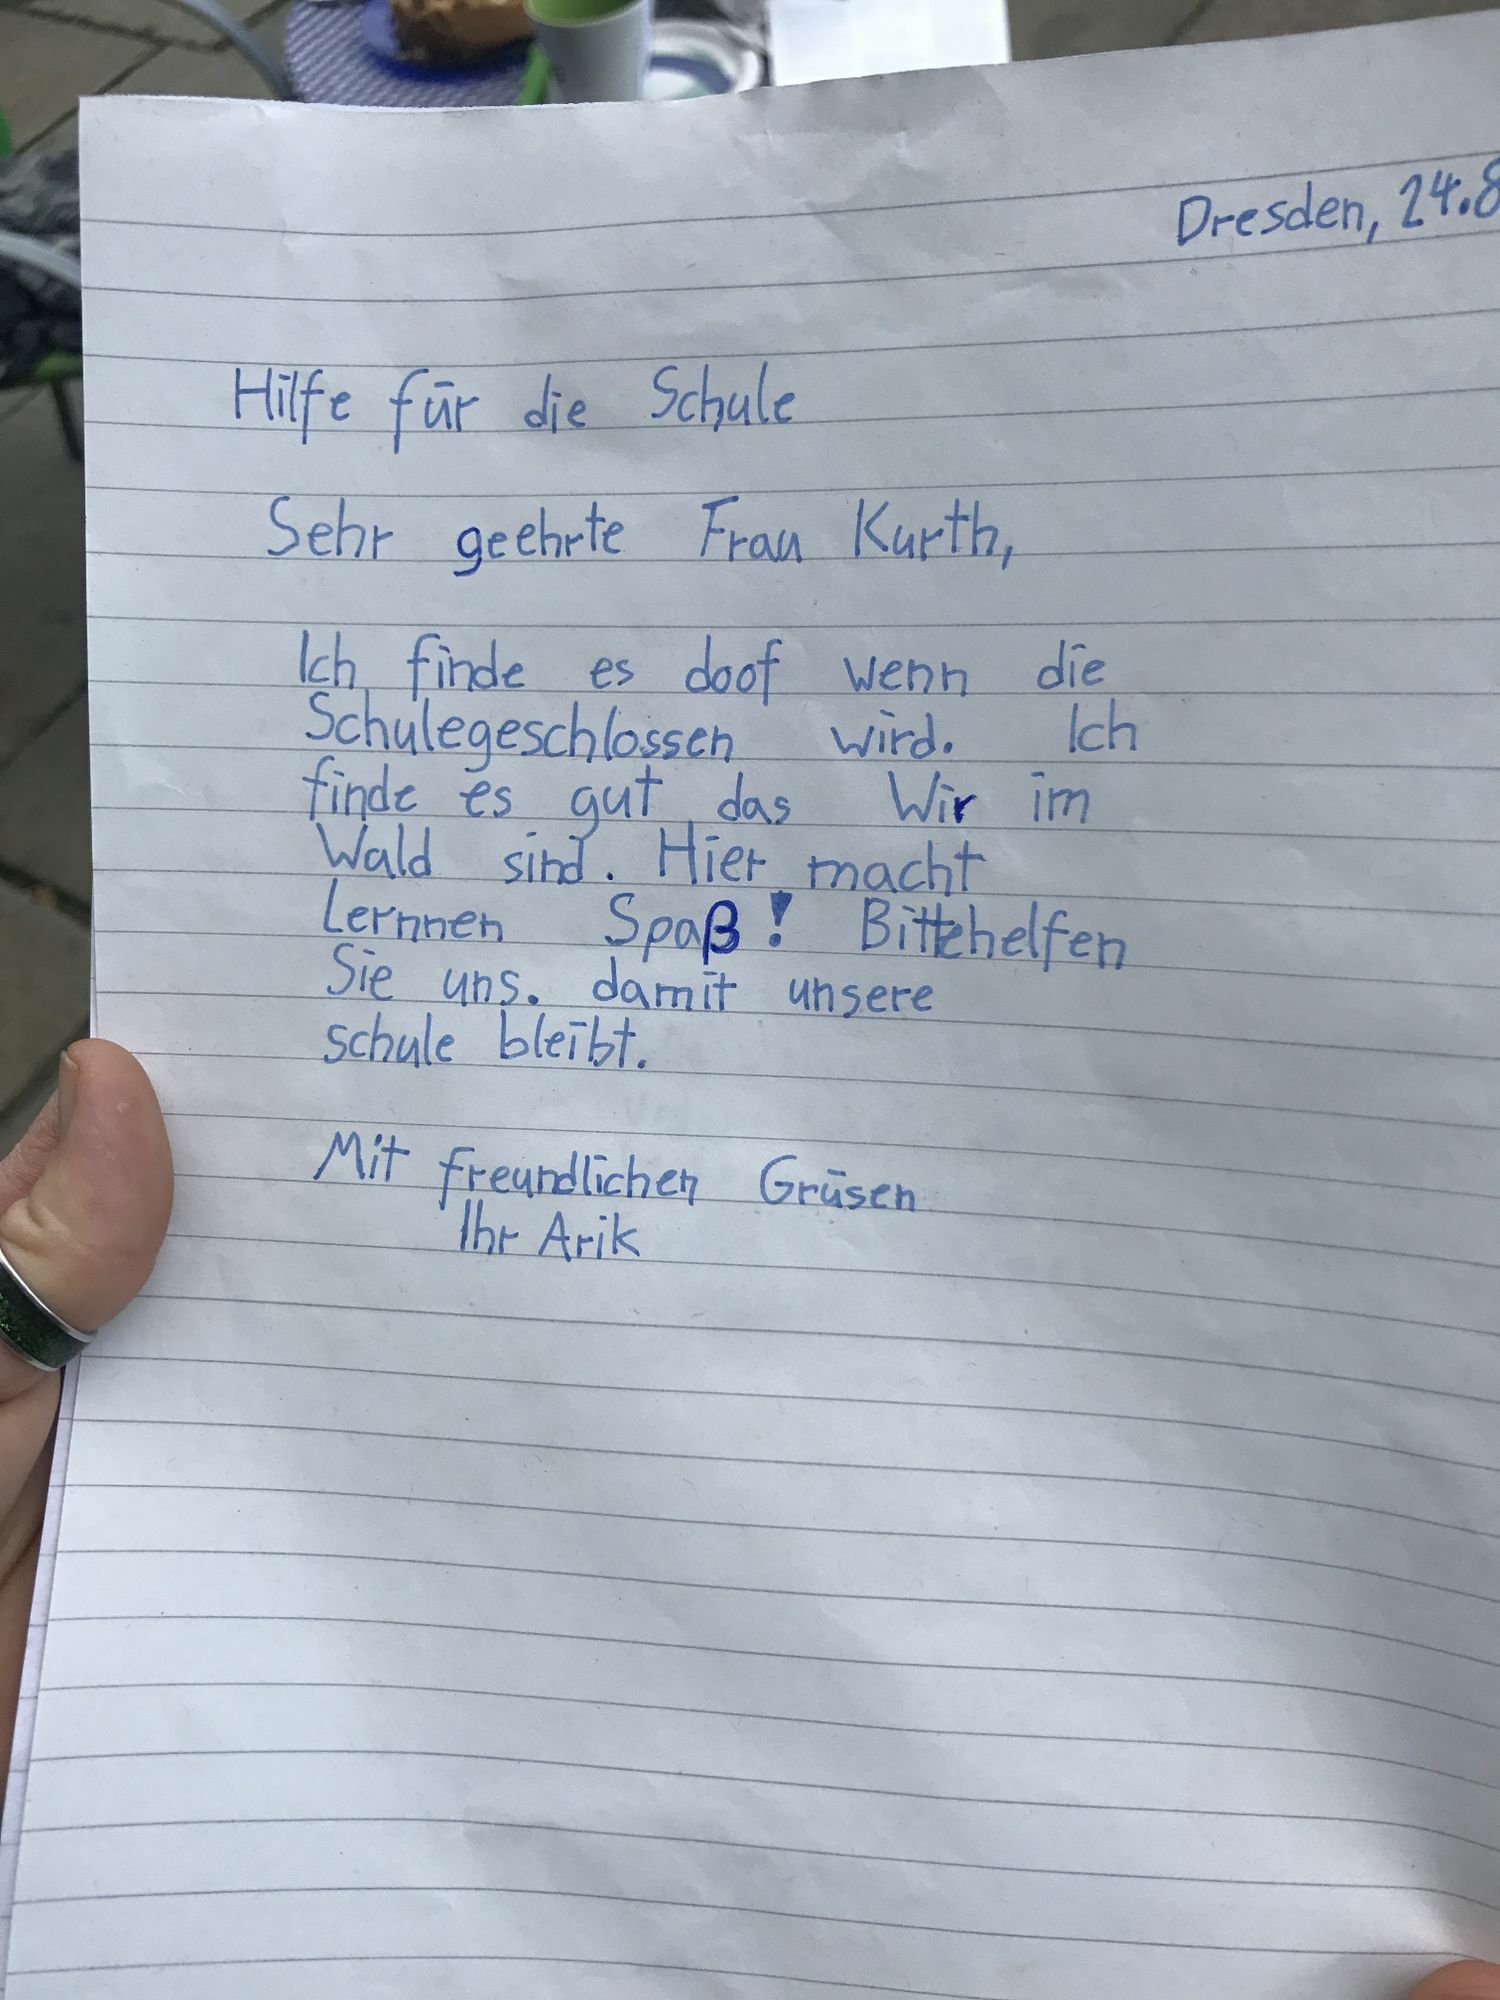 Dresden, 24.8
Hilfe für die Schule
Sehr geehrte Frau Kurth,
Ich finde es doof wenn die
Schulegeschlossen wird. Ich
finde es gut das Wir im
Wald sind. Hier macht
Lernnen Spaß! Bittehelfen
Sie uns. damit unsere
schule bleibt.
Mit freundlichen Grüsen
Ihr Arik